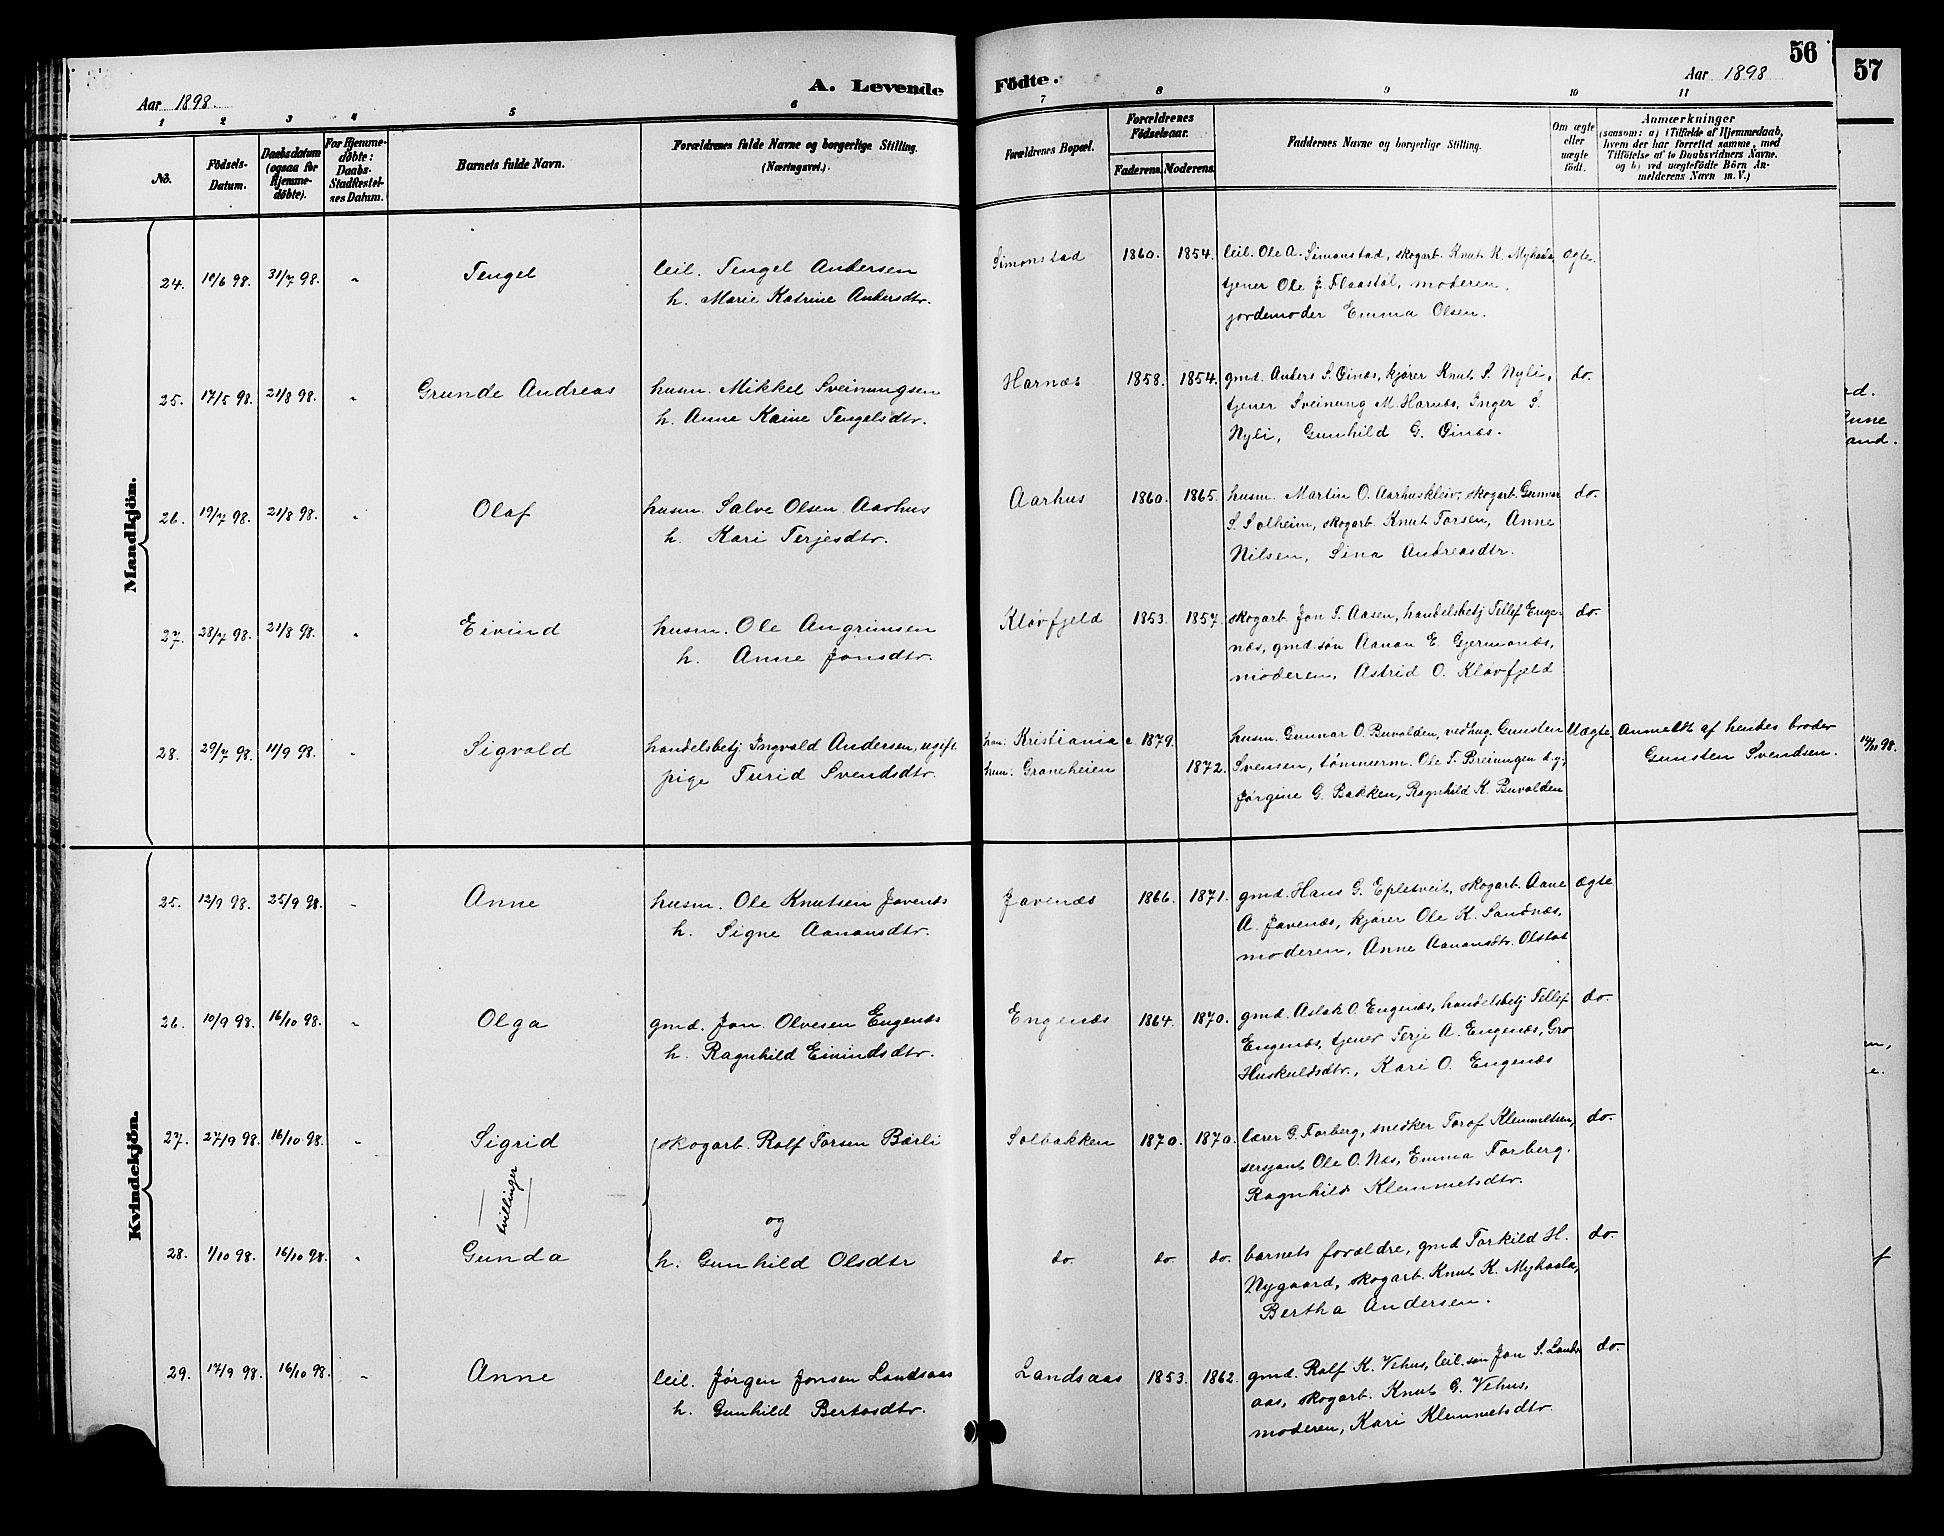 56
57
A. Levende Fødte.
Aar 1898.
Aar 1898
1 2 3 4 5 6 7 8 9 10 11
No.
Fødsels-Datum.
Daabsdatum (ogsaa for Hjemmedøbte).
For Hjemmedøbte: Daabs-Stadfæstelses Datum.
Barnets fulde Navn.
Forældrenes fulde Navne og borgerlige Stilling. (Næringsvei.)
Forældrenes Bopæl.
Forældrenes Fødselsaar.
Faderens. Moderens.
Faddernes Navne og borgerlige Stilling.
Om ægte eller uægte født.
Anmærkninger
(saasom: a) i Tilfælde af Hjemmedaab,
hvem der har forrettet samme, med
Tilføielse af to Daabsvidners Navne.
og b) ved uægtefødte Børn An-
melderens Navn m. V.)
Mandkjön.
24. 10/6 98. 31/7 98. " Tengel leil. Tengel Andersen Simonstad 1860. 1854. leil. Ole A. Simonstad, skogarb. Knut K. Myhaala ægte.
h. Marie Katrine Andersdtr. tjener Ole J. Flaastøl, moderen,
jordemoder Emma Olsen.
25. 17/5 98. 21/8 98. " Grunde Andreas husm. Mikkel Sveinungsen Harnæs 1858. 1854. gmd. Anders S. Øinæs, kjører Knut S. Nyli, do.
h. Anne Kaine Tengelsdtr. tjener Sveinung M. Harnæs, Inger S.
Nyli, Gunhild G. Øinæs.
26. 19/7 98. 21/8 98. " Olaf husm. Salve Olsen Aarhus Aarhus 1860. 1865. husm. Martin O. Aarhuskleiv, skogarb. Gunnar do.
h. Kari Terjesdtr. S. Solheim, skogarb. Knut Torsen, Anne
Nilsen, Sina Andreasdtr.
27. 28/7 98. 21/8 98. " Eivind husm. Ole Angrimsen Kløvfjeld 1853. 1857. skogarb. Jon T. Aasen, handelsbetj Tellef Enge- do.
h. Anne Jonsdtr. næs, gmd. søn Aanon E. Gjermonæs,
moderen, Astrid O. Kløvfjeld
28. 29/7 98. 11/9 98. " Sigvald handelsbetj Ingvald Andersen, ugift han: Kristiania c. 1879. husm. Gunnar O. Buvolden, vedhug. Gunsten Uægte Anmeldt af hendes broder
pige Turid Svendsdtr. hun: Graneheien 1872. Svensen, tømmerm. Ole T. Breiungen d.y., Gunsten Svendsen.
Jørgine G. Bakken, Ragnhild K. Buvolden
Kvindekjön.
25. 12/9 98. 25/9 98. " Anne husm. Ole Knutsen Jovenæs Jovenæs 1866. 1871. gmd. Hans G. Epletveit, skogarb. Aane ægte
h. Signe Aanonsdtr. A. Jovenæs, kjører Ole K. Sandnæs,
moderen, Anne Aanonsdtr. Olstad
26. 10/9 98. 16/10 98. " Olga gmd. Jon Olvesen Engenæs Engenæs 1864. 1870. gmd. Aslak O. Engenæs, handelsbetj Tellef do.
h. Ragnhild Eivindsdtr. Engenæs, tjener Terje A. Engenæs, Gro
Huskuldsdtr., Kari O. Engenæs
27. 27/9 98. 16/10 98. " Sigrid skogarb. Rolf Torsen Børli Solbakken 1870. 1870. lærer G. Forberg, snedker Torof Klemmetsen, do.
sersjant Ole O. Næs, Emma Forberg,
Ragnhild Klemmetsdtr.
tvillinger
og
28. 1/10 98. 16/10 98. " Gunda h. Gunhild Olsdtr do. do. do. barnets forældre, gmd Torkild H. do.
Nygaard, skogarb. Knut K. Myhaala,
Bertha Andersen.
29. 17/9 98. 16/10 98. " Anne leil. Jørgen Jonsen Landsaas Landsaas 1853. 1862. gmd. Rolf K. Vehus, leil. søn Jon S. Lands- do.
h. Gunhild Bertosdtr. aas, skogarb. Knut G. Vehus,
moderen, Kari Klemmetsdtr.